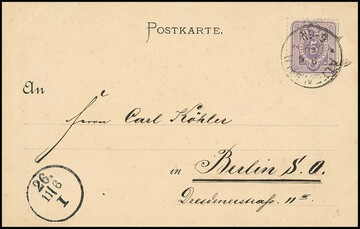 POSTKARTE.
An
Herrn Carl Köhler
in Berlin S.O.
Dresdenerstraße 11
26.
III 6
1
5